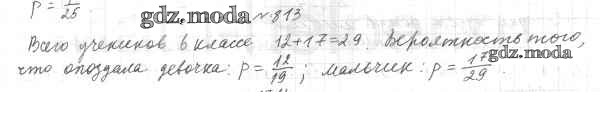 p = 1/25
gdz.moda №813
Всего учеников в классе 12+17=29. Вероятность того,
gdz.moda
что опоздала девочка: p = 12/19 ; мальчик: p = 17/29.